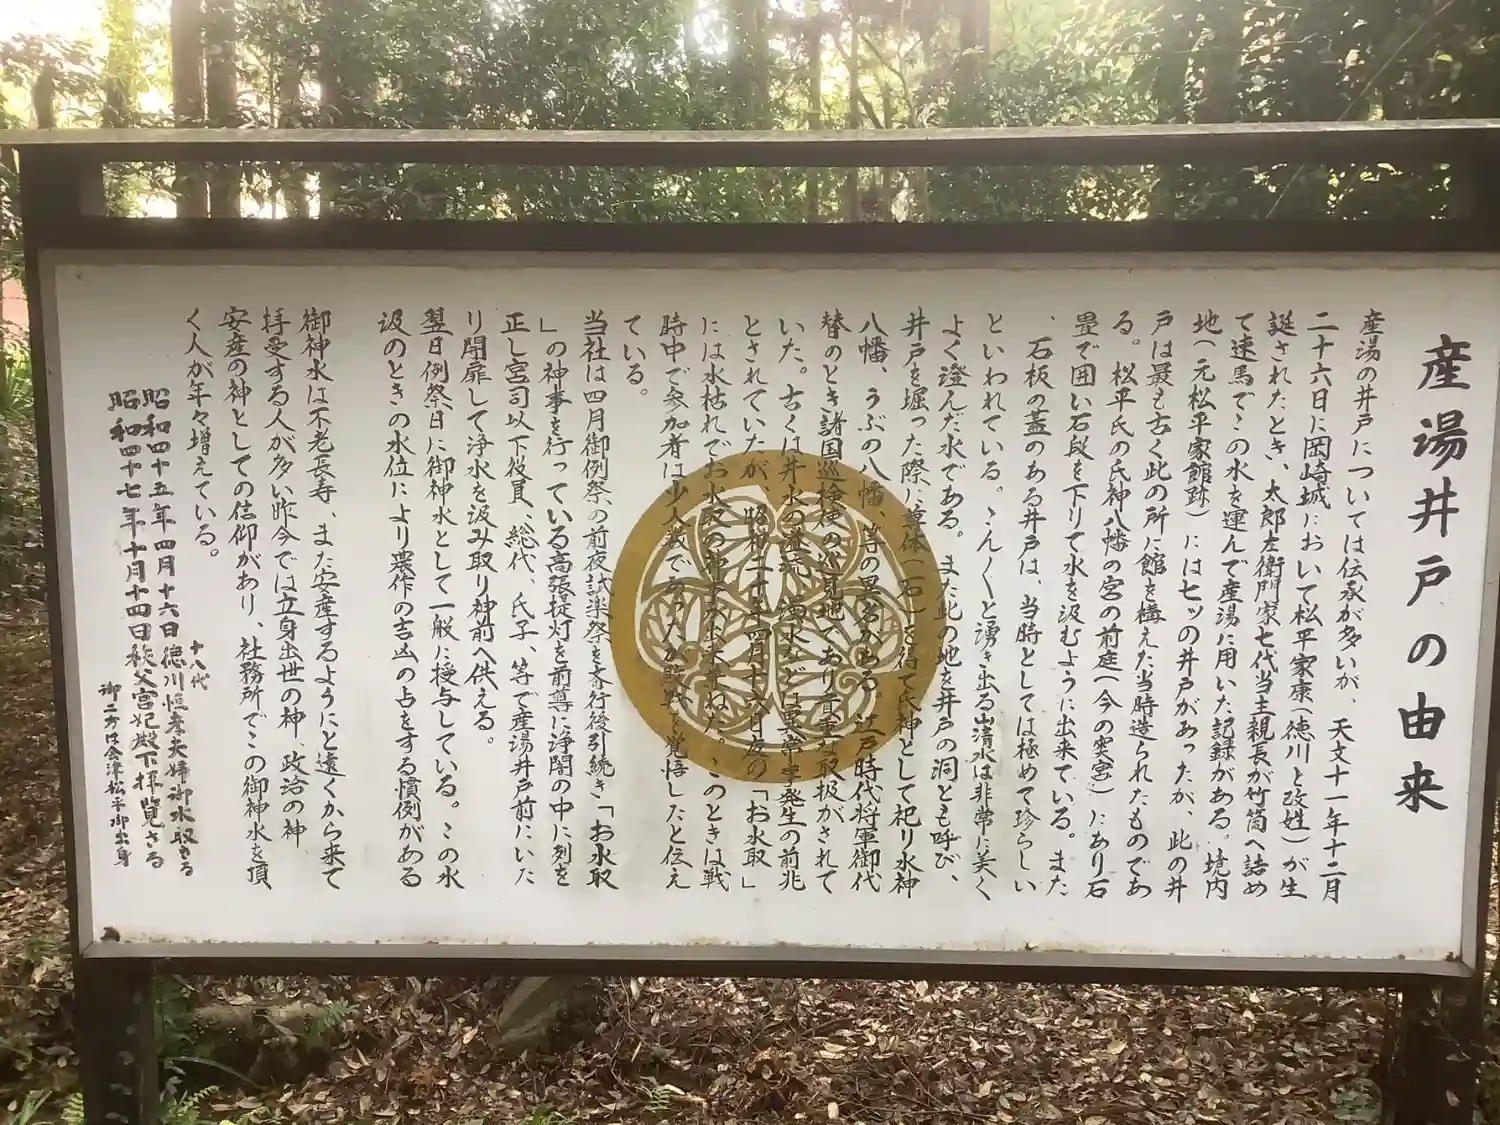 産湯井戸の由来
産湯の井戸については伝承が多いが、天文十一年十二月
二十六日に岡崎城において松平家康(徳川と改姓)が生
誕されたとき、太郎左衛門家七代当主親長が竹筒へ詰め
て速馬でこの水を運んで産湯に用いた記録がある。境内
地(元松平家館跡)には七ツの井戸があったが、此の井
戸は最も古く此の所に館を構えた当時造られたものであ
る。松平氏の氏神八幡の宮の前庭(今の奥宮)にあり石
畳で囲い石段を下りて水を汲むように出来ている。また
、石板の蓋のある井戸は、当時としては極めて珍らしい
といわれている。こんこんと湧き出る山清水は非常に美く
よく澄んだ水である。また此の地を井戸の洞とも呼び、
井戸を堀った際に尊体(石)を得て氏神として祀り水神
八幡、うぶの八幡、等の異名がある。江戸時代将軍御代
替のとき諸国巡検使の巡見地であり貴重な取扱がされて
いた。古くは井水の逆流、濁水などは異常事発生の前兆
とされていたが、昭和二十年四月十六日夜の「お水取」
には水枯れでお水取の神事が出来ねた。このときは戦
時中で参加者は少人数であったが敗戦を覚悟したと伝え
ている。
当社は四月御例祭の前夜試楽祭を斎行後引続き「お水取
」の神事を行っている高張提灯を前導に浄闇の中に刻を
正し宮司以下役員、総代、氏子、等で産湯井戸前にいた
り開扉して浄水を汲み取り神前へ供える。
翌日例祭日に御神水として一般に授与している。この水
汲のときの水位により農作の吉凶の占をする慣例がある
御神水は不老長寿、また安産するようにと遠くから来て
拝受する人が多い昨今では立身出世の神、政治の神
安産の神としての信仰があり、社務所でこの御神水を頂
く人が年々増えている。
昭和四十五年四月十六日 十八代 徳川恒孝夫婦御水取さる
昭和四十七年十月十四日秩父宮妃殿下拝覧さる
御二方は会津松平御出身